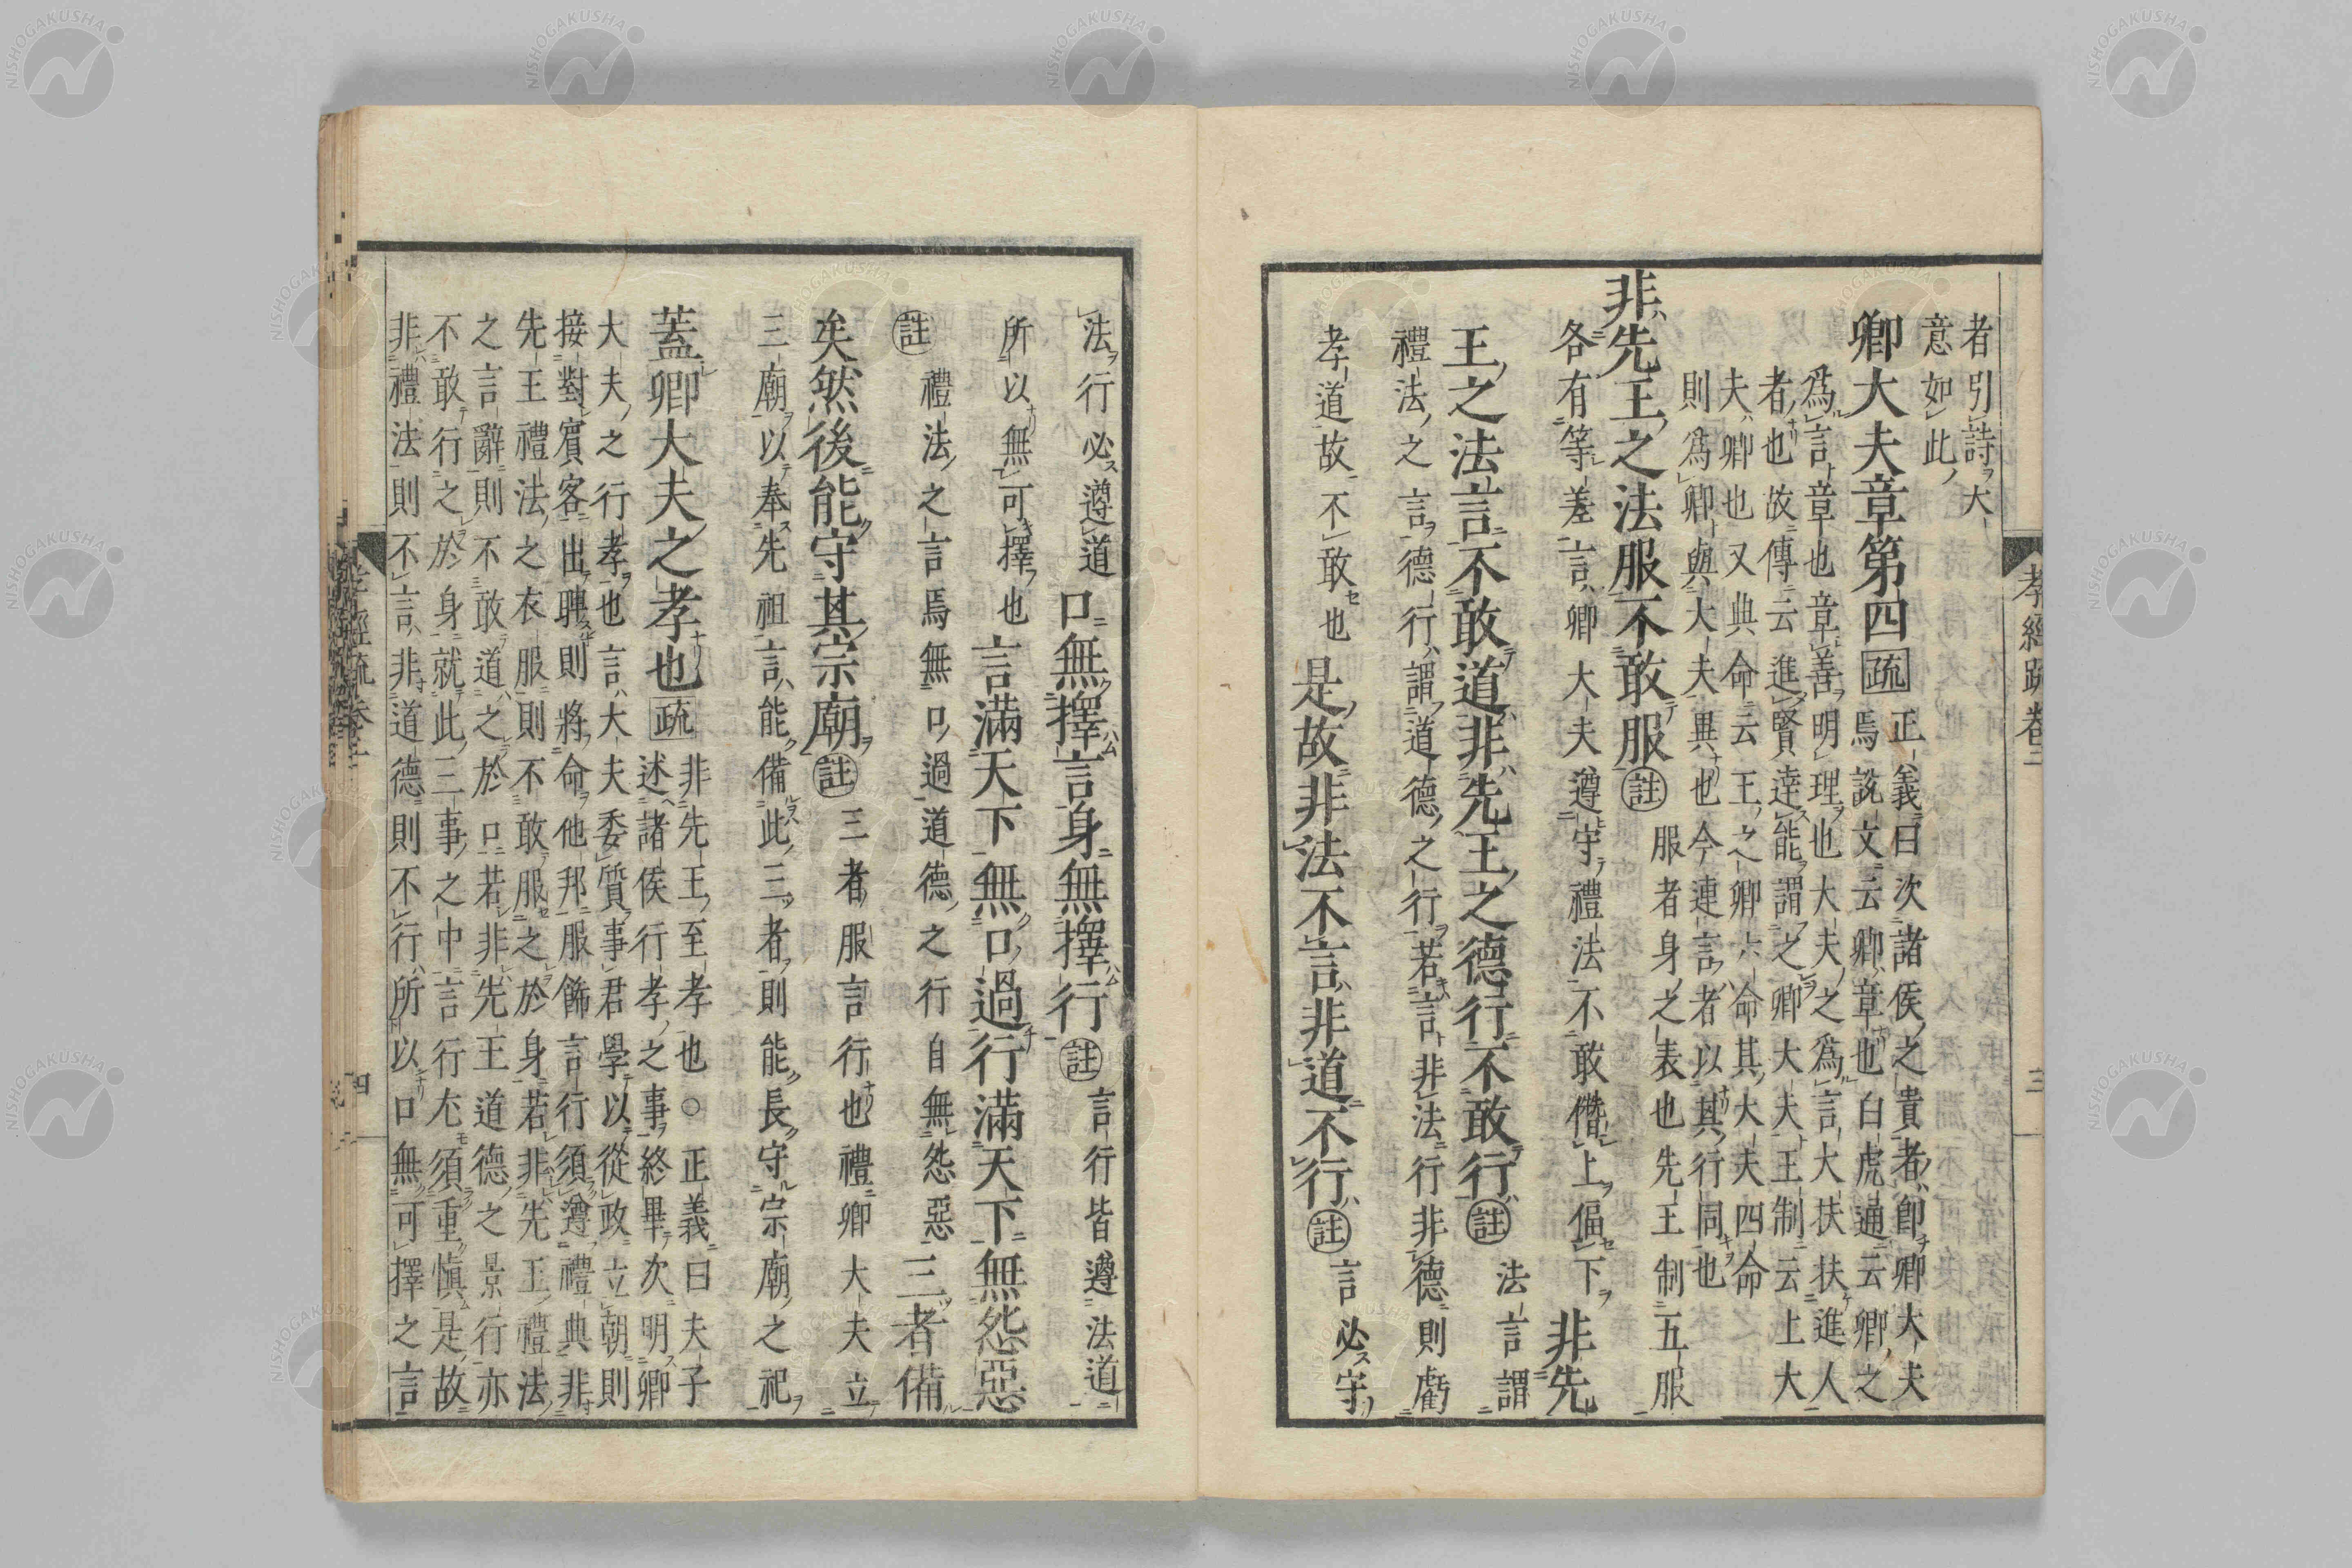 者引詩大
意如此
卿大夫章第四疏
正義曰次諸侯之貴者卽卿大夫
焉說文云卿章也白虎通云卿之
爲言章也章善明理也大夫之爲言大扶扶進人
者也故傳云進賢達能謂之卿大夫王制云上大
夫卿也又典命云王之卿六命其大夫四命
則爲卿與大夫異也今連言者以其行同也
非先王之法服不敢服註
服者身之表也先王制五服
各有等差言卿大夫遵守禮法不敢僭上偪下
非先
王之法言不敢道非先王之德行不敢行註
法言謂
禮法之言德行謂道德之行若言非法行非德則虧
孝道故不敢也
是故非法不言非道不行註
言必守
法行必遵道
口無擇言身無擇行註
言行皆遵法道
所以無可擇也
言滿天下無口過行滿天下無怨惡
註
禮法之言焉無口過道德之行自無怨惡
三者備
矣然後能守其宗廟註
三者服言行也禮卿大夫立
三廟以奉先祖言能備此三者則能長守宗廟之祀
蓋卿大夫之孝也疏
非先王至孝也○正義曰夫子
述諸侯行孝之事終畢次明卿
大夫之行孝也言大夫委質事君學以從政立朝則
接對賓客出聘則將命他邦服飾言行須遵禮典非
先王禮法之衣服則不敢服之於身若非先王禮法
之言辭則不敢道之於口若非先王道德之景行亦
不敢行之於身就此三事之中言行尤須重愼是故
非禮法則不言非道德則不行所以口無可擇之言
孝經疏卷二
三
孝經疏卷二
四
NISHOGAKUSHA